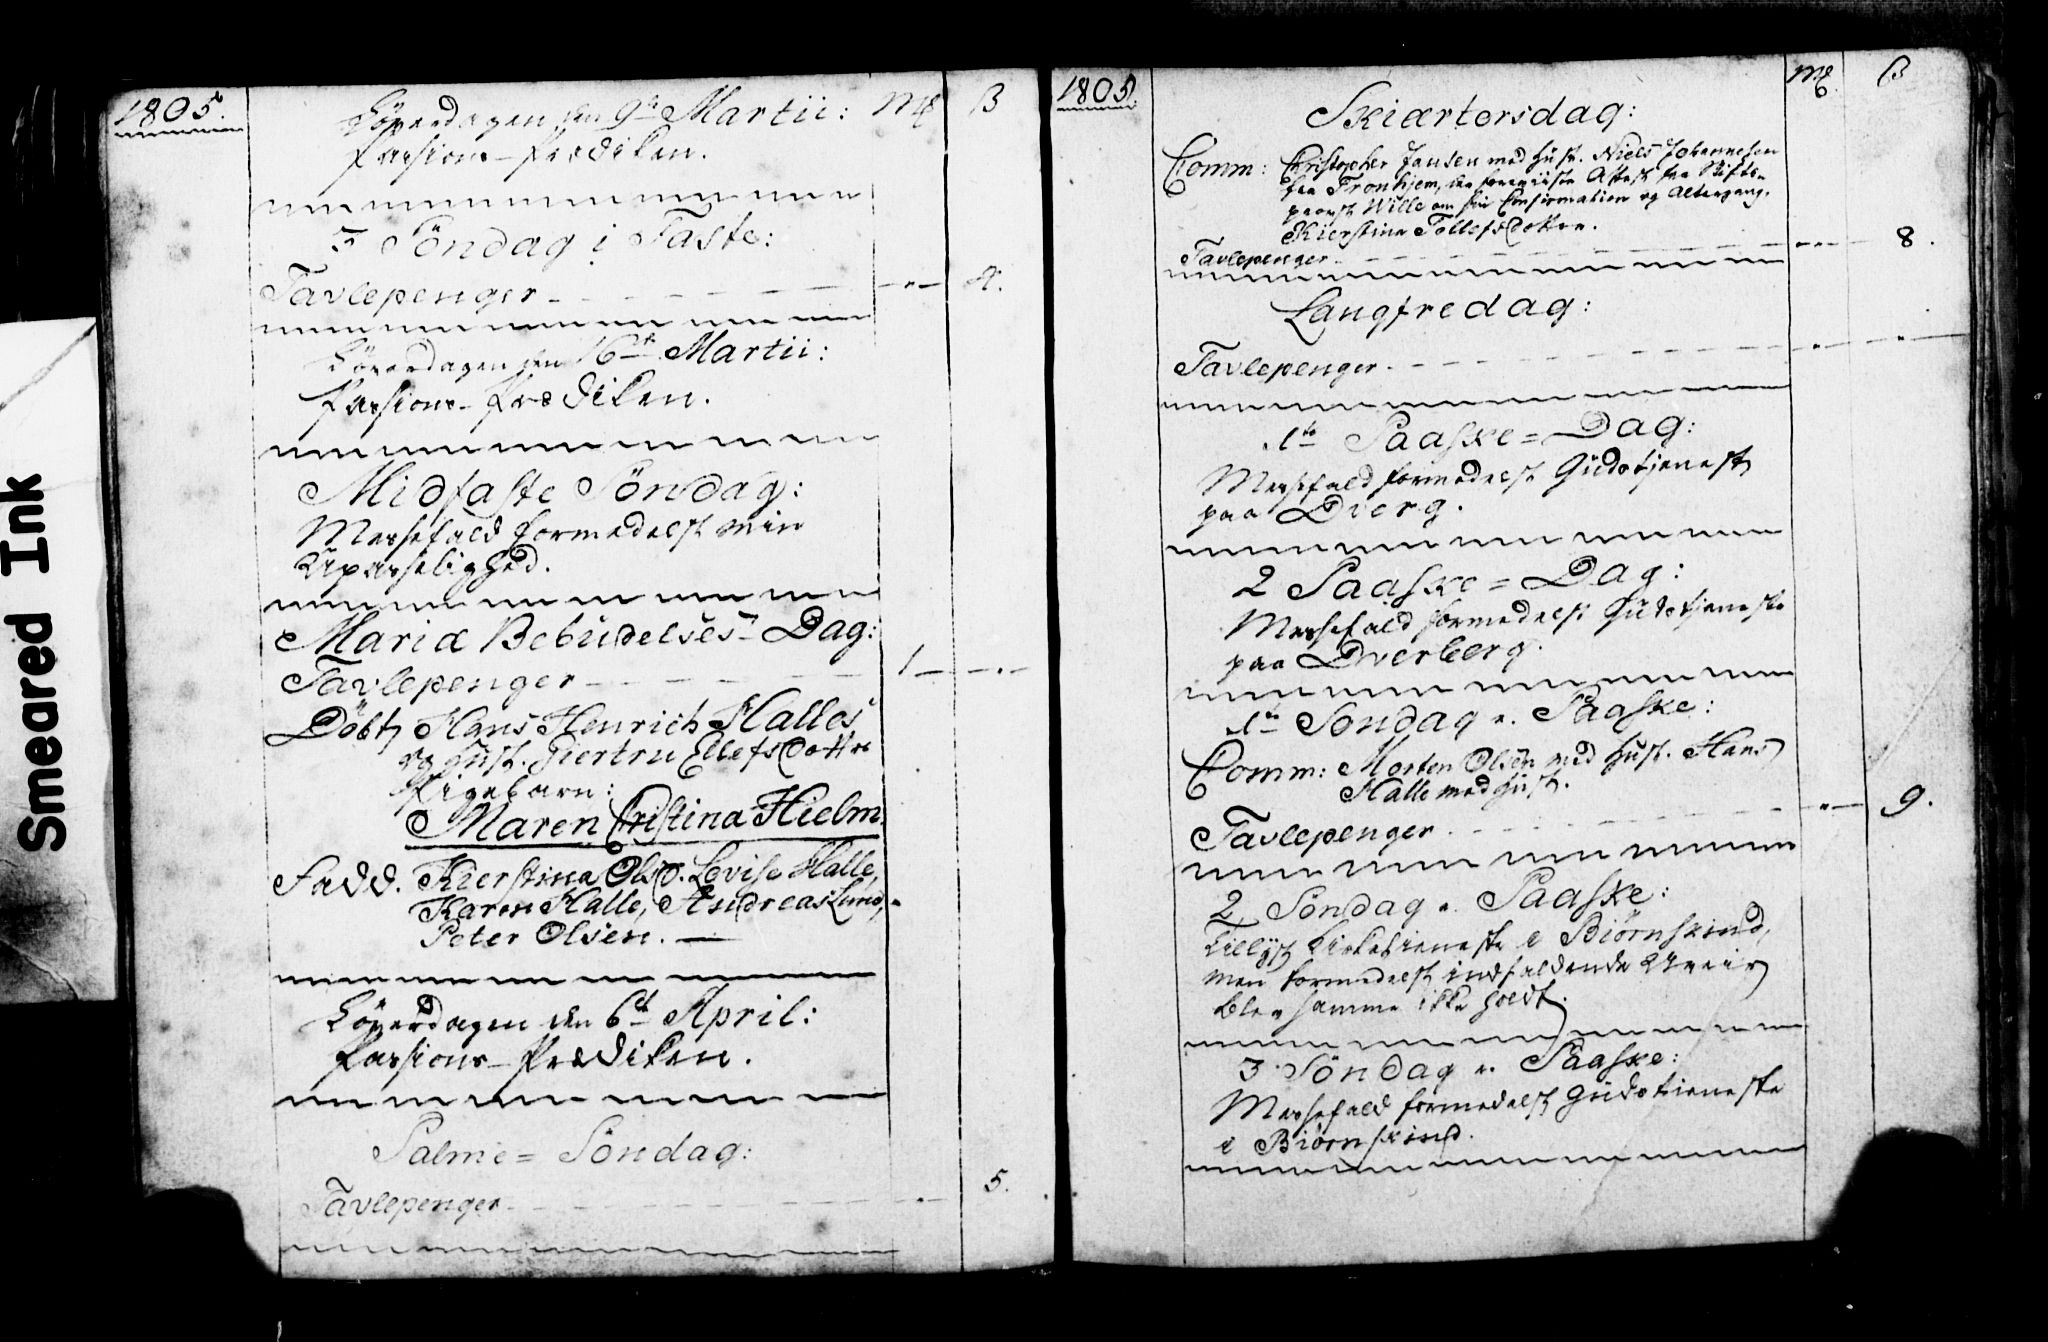 Smeared Ink
1805.
Mk β
Löverdagen den 9de Martii:
Passions-Prædiken.
3 Söndag i Faste:
Tavlepenger - - - 4.
Löverdagen den 16de Martii:
Passions-Prædiken.
Midfaste Söndag:
Messefald formedelst min
Upasselighed.
Mariæ Bebudelses-Dag:
Tavlepenger - - - 1 -
Döbt Hans Henrich Halles
og Hust. Giertru Ellefs Dotter
Pigebarn:
Maren Christina Hielm.
Fadd. Kierstina Olsd. Lovise Halle,
Karen Halle, Andreas Lund,
Peter Olsen.
Löverdagen den 6te April:
Passions-Prædiken.
Palme= Söndag:
Tavlepenger - - - 5.
1805.
Mk. β
Skiærtorsdag:
Comm: Christopher Jansen med Hust. Niels Johannesen
fra Tronhjem, der foreviiste Attest fra Stifts-
provst Wille om sin Confirmation og Altergang.
Kierstina Tollefs Dotter.
Tavlepenger - - - 8.
Langfredag:
Tavlepenger - - -
1te Paaske=Dag:
Messefald formedelst Gudstjeneste
paa Dverg.
2 Paaske=Dag:
Messefald formedelst Gudstjeneste
paa Dverberg.
1te Söndag e. Paaske:
Comm: Morten Olsen med Hust. Hans
Halle med Hust.
Tavlepenger - - - 9.
2 Söndag e. Paaske:
Tillyst Kirketieneste i Biørnskind,
men formedelst indfaldende Uveir
blev samme ikke holdt.
3 Söndag e. Paaske:
Messefald formedelst Gudstieneste
i Biørnskind.